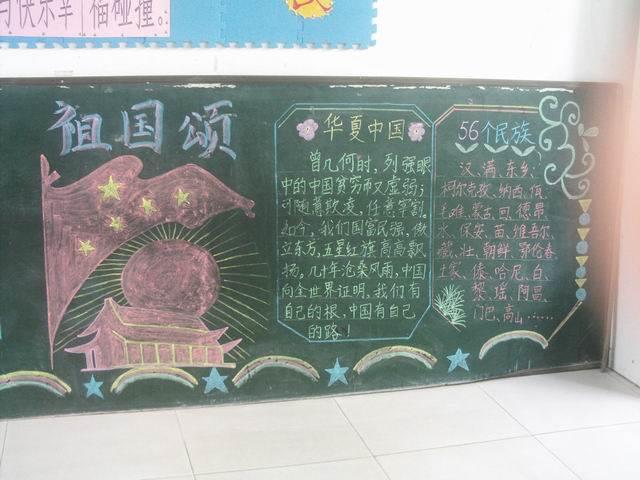 与快乐幸福碰撞。
祖国颂
华夏中国
曾几何时,列强眼
中的中国贫穷而又虚弱;
可随意欺凌,任意宰割。
如今,我们国富民强,傲
立东方,五星红旗高高飘
扬。几十年沧桑风雨,中国
向全世界证明,我们有
自己的根,中国有自己
的路!
56个民族
汉、满、东乡、
柯尔克孜、纳西、佤、
毛难、蒙古、回、德昂
水、保安、苗、维吾尔
藏、壮、朝鲜、鄂伦春
土家、傣、哈尼、白、
黎、瑶、阿昌、
门巴、高山……